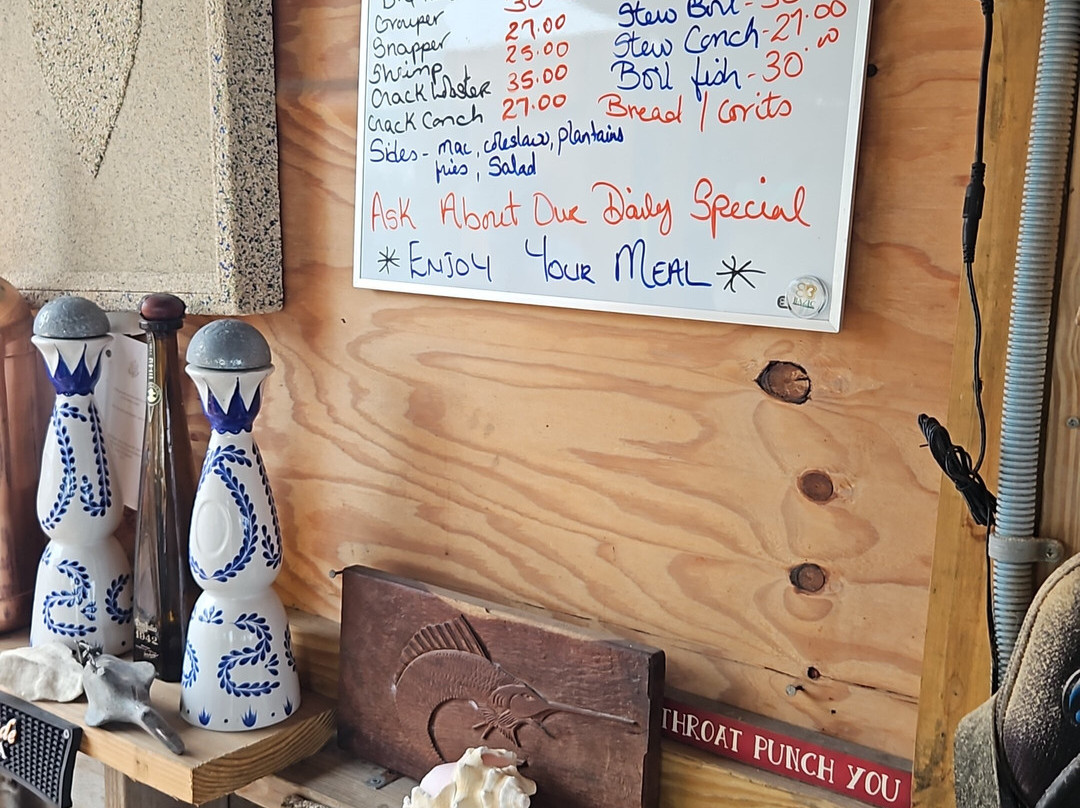 Grouper
Snapper 27.00
Shrimp 25.00
Crack Lobster 35.00
Crack Conch 27.00
Stew Conch - 27.00
Boil fish - 30.00
Bread / Grits
Sides - mac, coleslaw, plantains
fries, Salad
Ask About Our Daily Special
* ENJOY YOUR MEAL *
1942
THROAT PUNCH YOU